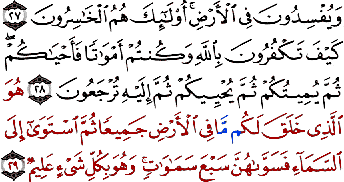 وَيُفْسِدُونَ فِى ٱلْأَرْضِ ۚ أُو۟لَـٰٓئِكَ هُمُ ٱلْخَـٰسِرُونَ ﴿٢٧﴾
كَيْفَ تَكْفُرُونَ بِٱللَّهِ وَكُنتُمْ أَمْوَٰتًا فَأَحْيَـٰكُمْ ۖ
ثُمَّ يُمِيتُكُمْ ثُمَّ يُحْيِيكُمْ ثُمَّ إِلَيْهِ تُرْجَعُونَ ﴿٢٨﴾ هُوَ
ٱلَّذِى خَلَقَ لَكُم مَّا فِى ٱلْأَرْضِ جَمِيعًا ثُمَّ ٱسْتَوَىٰٓ إِلَى
ٱلسَّمَآءِ فَسَوَّىٰهُنَّ سَبْعَ سَمَـٰوَٰتٍ ۚ وَهُوَ بِكُلِّ شَىْءٍ عَلِيمٌ ﴿٢٩﴾